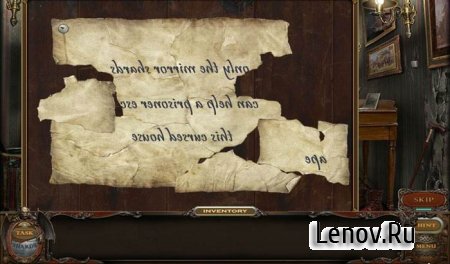 only the mirror shards
can help a prisoner esc
this cursed house
ape
INVENTORY
SKIP
HINT
MENU
TASK
SHARDS
Lenov.Ru